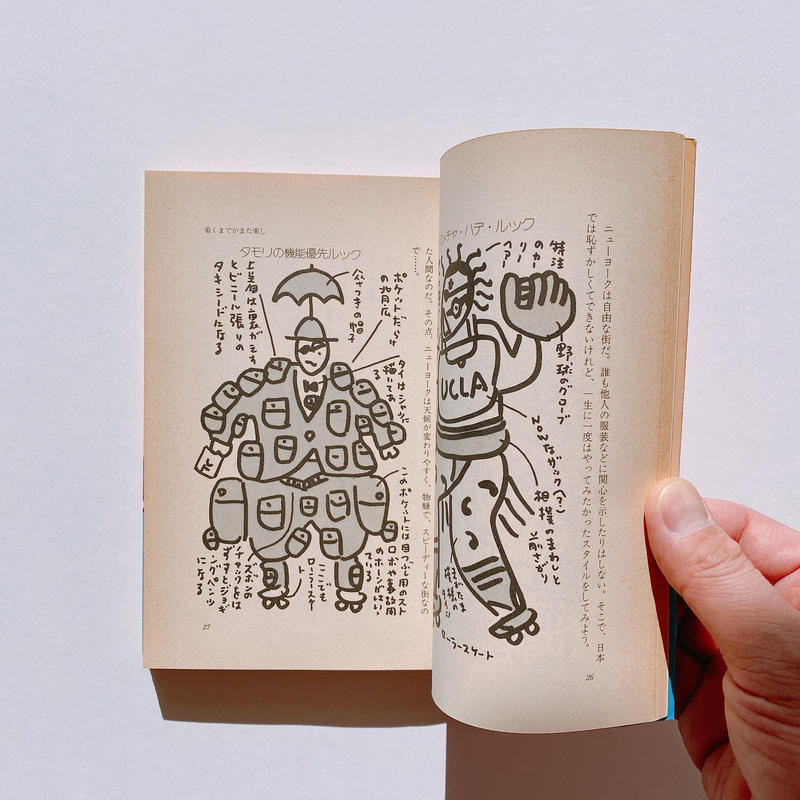 ニューヨークは自由な街だ。誰も他人の服装などに関心を示したりはしない。そこで、日本
では恥ずかしくてできないけれど、一生に一度はやってみたかったスタイルをしてみよう。
チャ・ハデ・ルック
特注
のカー
リー
ヘアー
野球のグローブ
UCLA
NOWなザック(?)
相撲のまわしと
前さがり
ローラースケート
26
た人間なのだ。その点、ニューヨークは天候が変わりやすく、物騒で、スピーディーな街なの
で……。
着くまでがまた楽し
タモリの機能優先ルック
ポケットだらけ
の背広
傘つきの帽
子
上着は裏がえす
とビニール張りの
タキシードになる
タイはシャツに
描いてあ
る
このポケットには目つぶし用のスト
ロボや事故用
のホーンがはいっ
てる
ここでも
ローラースケー
ト
ズボンの
チャックをは
ずすとジョギ
ングパンツ
になる
27